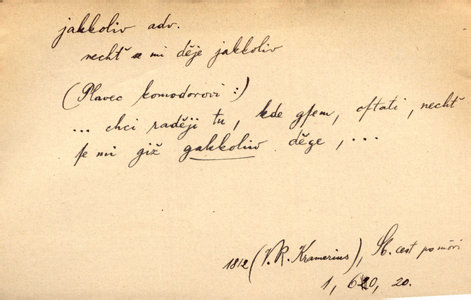 jakkoliv adv.
nechť se mi děje jakkoliv
(Plavec komodorovi:)
... chci raději tu, kde gsem, cſtati, nechť
ſe mi giž gakkoliv děge, ...
1812 (V. R. Kramerius), St. cest po móři
1, 620, 20.